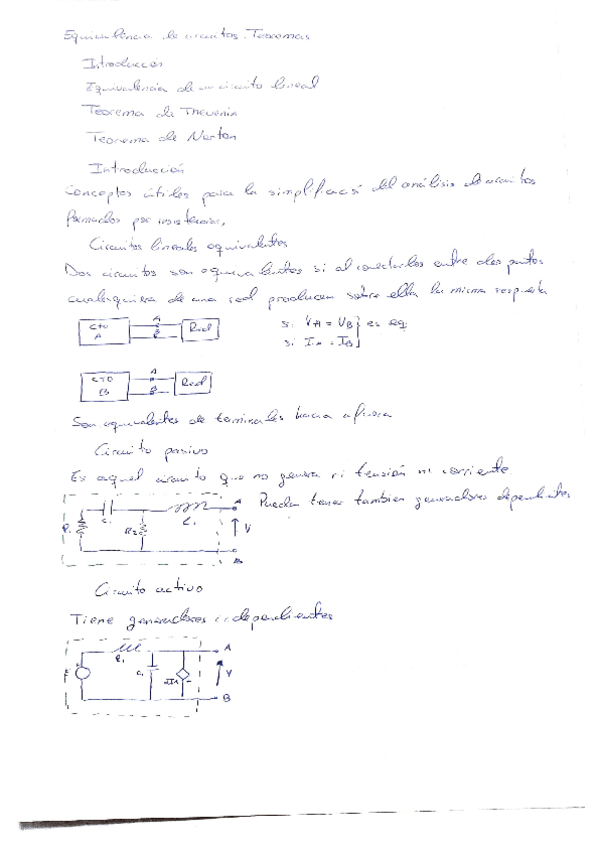 Equivalencia de circuitos. Teoremas
Introducción
Equivalencia de un circuito lineal
Teorema de Thevenin
Teorema de Norton
Introducción
Conceptos útiles para la simplificación del análisis de circuitos
formados por resistencias.
Circuitos lineales equivalentes
Dos circuitos son equivalentes si al conectarlos entre dos puntos
cualesquiera de una red producen sobre ella la misma respuesta
CTO A A B Red
si VA = VB } es eq
si IA = IB
CTO B A B Red
Son equivalentes de terminales hacia afuera
Circuito pasivo
Es aquel circuito que no genera ni tensión ni corriente
Pueden tener tambien generadores dependientes
R1 C1 R2 L1 A V B
Circuito activo
Tiene generadores independientes
R1 C1 A V B